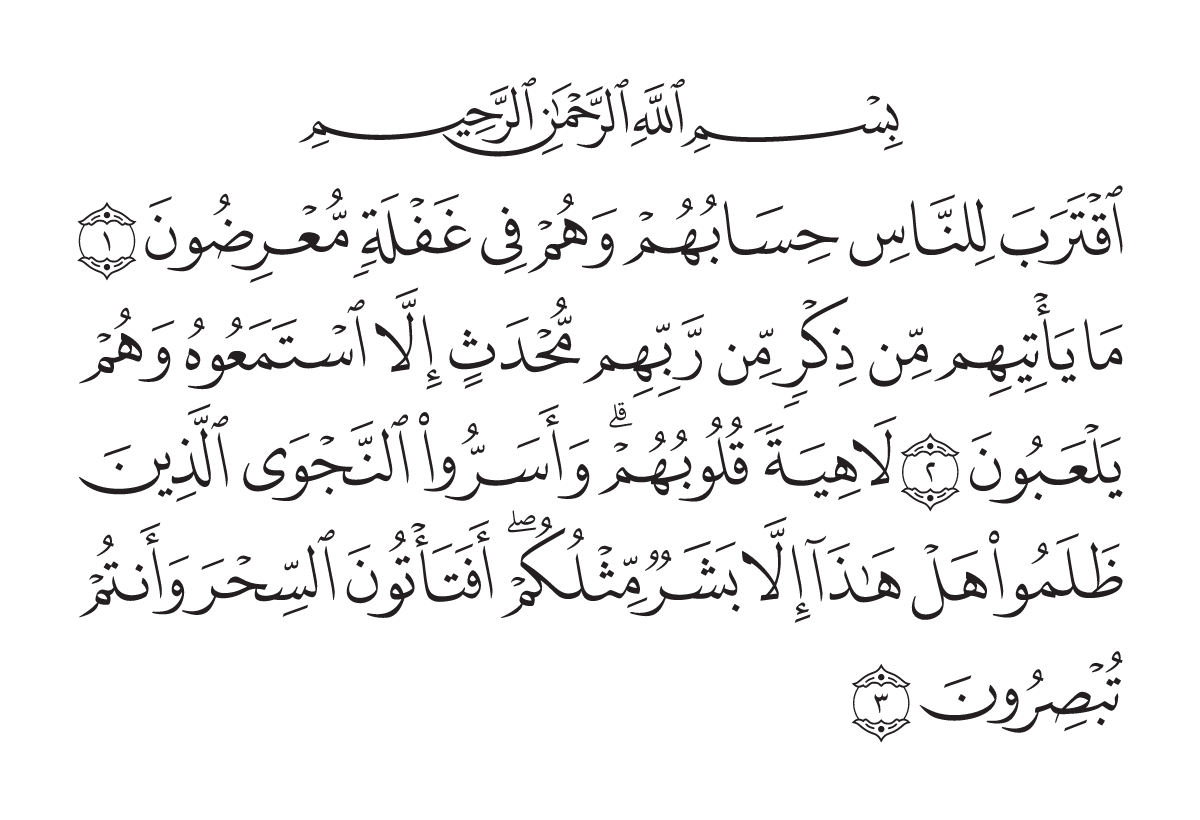 بِسْمِ ٱللَّهِ ٱلرَّحْمَٰنِ ٱلرَّحِيمِ
ٱقْتَرَبَ لِلنَّاسِ حِسَابُهُمْ وَهُمْ فِى غَفْلَةٍ مُّعْرِضُونَ ١
مَا يَأْتِيهِم مِّن ذِكْرٍ مِّن رَّبِّهِم مُّحْدَثٍ إِلَّا ٱسْتَمَعُوهُ وَهُمْ
يَلْعَبُونَ ٢ لَاهِيَةً قُلُوبُهُمْ ۗ وَأَسَرُّوا۟ ٱلنَّجْوَى ٱلَّذِينَ
ظَلَمُوا۟ هَلْ هَٰذَآ إِلَّا بَشَرٌ مِّثْلُكُمْ ۖ أَفَتَأْتُونَ ٱلسِّحْرَ وَأَنتُمْ
تُبْصِرُونَ ٣